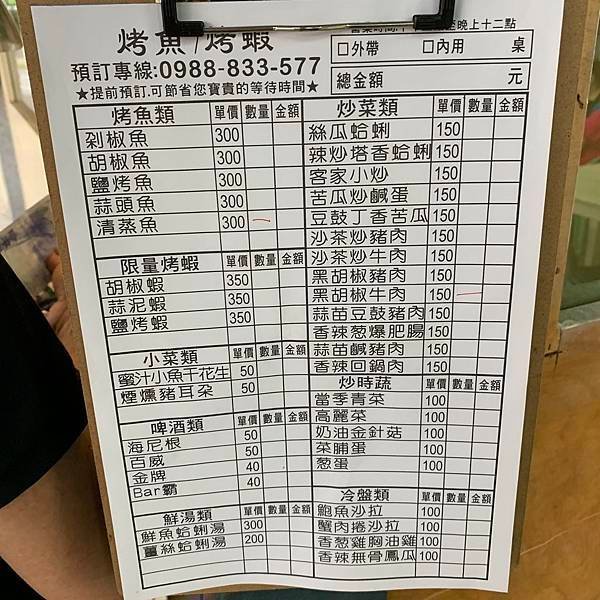 烤魚/烤蝦
預訂專線:0988-833-577
★提前預訂.可節省您寶貴的等待時間★
晚上十二點
□外帶 □內用 桌
總金額 元
烤魚類 單價 數量 金額
剁椒魚 300
胡椒魚 300
鹽烤魚 300
蒜頭魚 300
清蒸魚 300 一
限量烤蝦 單價 數量 金額
胡椒蝦 350
蒜泥蝦 350
鹽烤蝦 350
小菜類 單價 數量 金額
蜜汁小魚干花生 50
煙燻豬耳朶 50
啤酒類 單價 數量 金額
海尼根 50
百威 50
金牌 40
Bar霸 40
鮮湯類 單價 數量 金額
鮮魚蛤蜊湯 300
薑絲蛤蜊湯 200
炒菜類 單價 數量 金額
絲瓜蛤蜊 150
辣炒塔香蛤蜊 150
客家小炒 150
苦瓜炒鹹蛋 150
豆鼓丁香苦瓜 150
沙茶炒豬肉 150
沙茶炒牛肉 150
黑胡椒豬肉 150
黑胡椒牛肉 150 一
蒜苗豆鼓豬肉 150
香辣葱爆肥腸 150
蒜苗鹹豬肉 150
香辣回鍋肉 150
炒時蔬 單價 數量 金額
當季青菜 100
高麗菜 100
奶油金針菇 100
菜脯蛋 100
葱蛋 100
冷盤類 單價 數量 金額
鮑魚沙拉 100
蟹肉捲沙拉 100
香葱雞胸油雞 100
香辣無骨鳳瓜 100